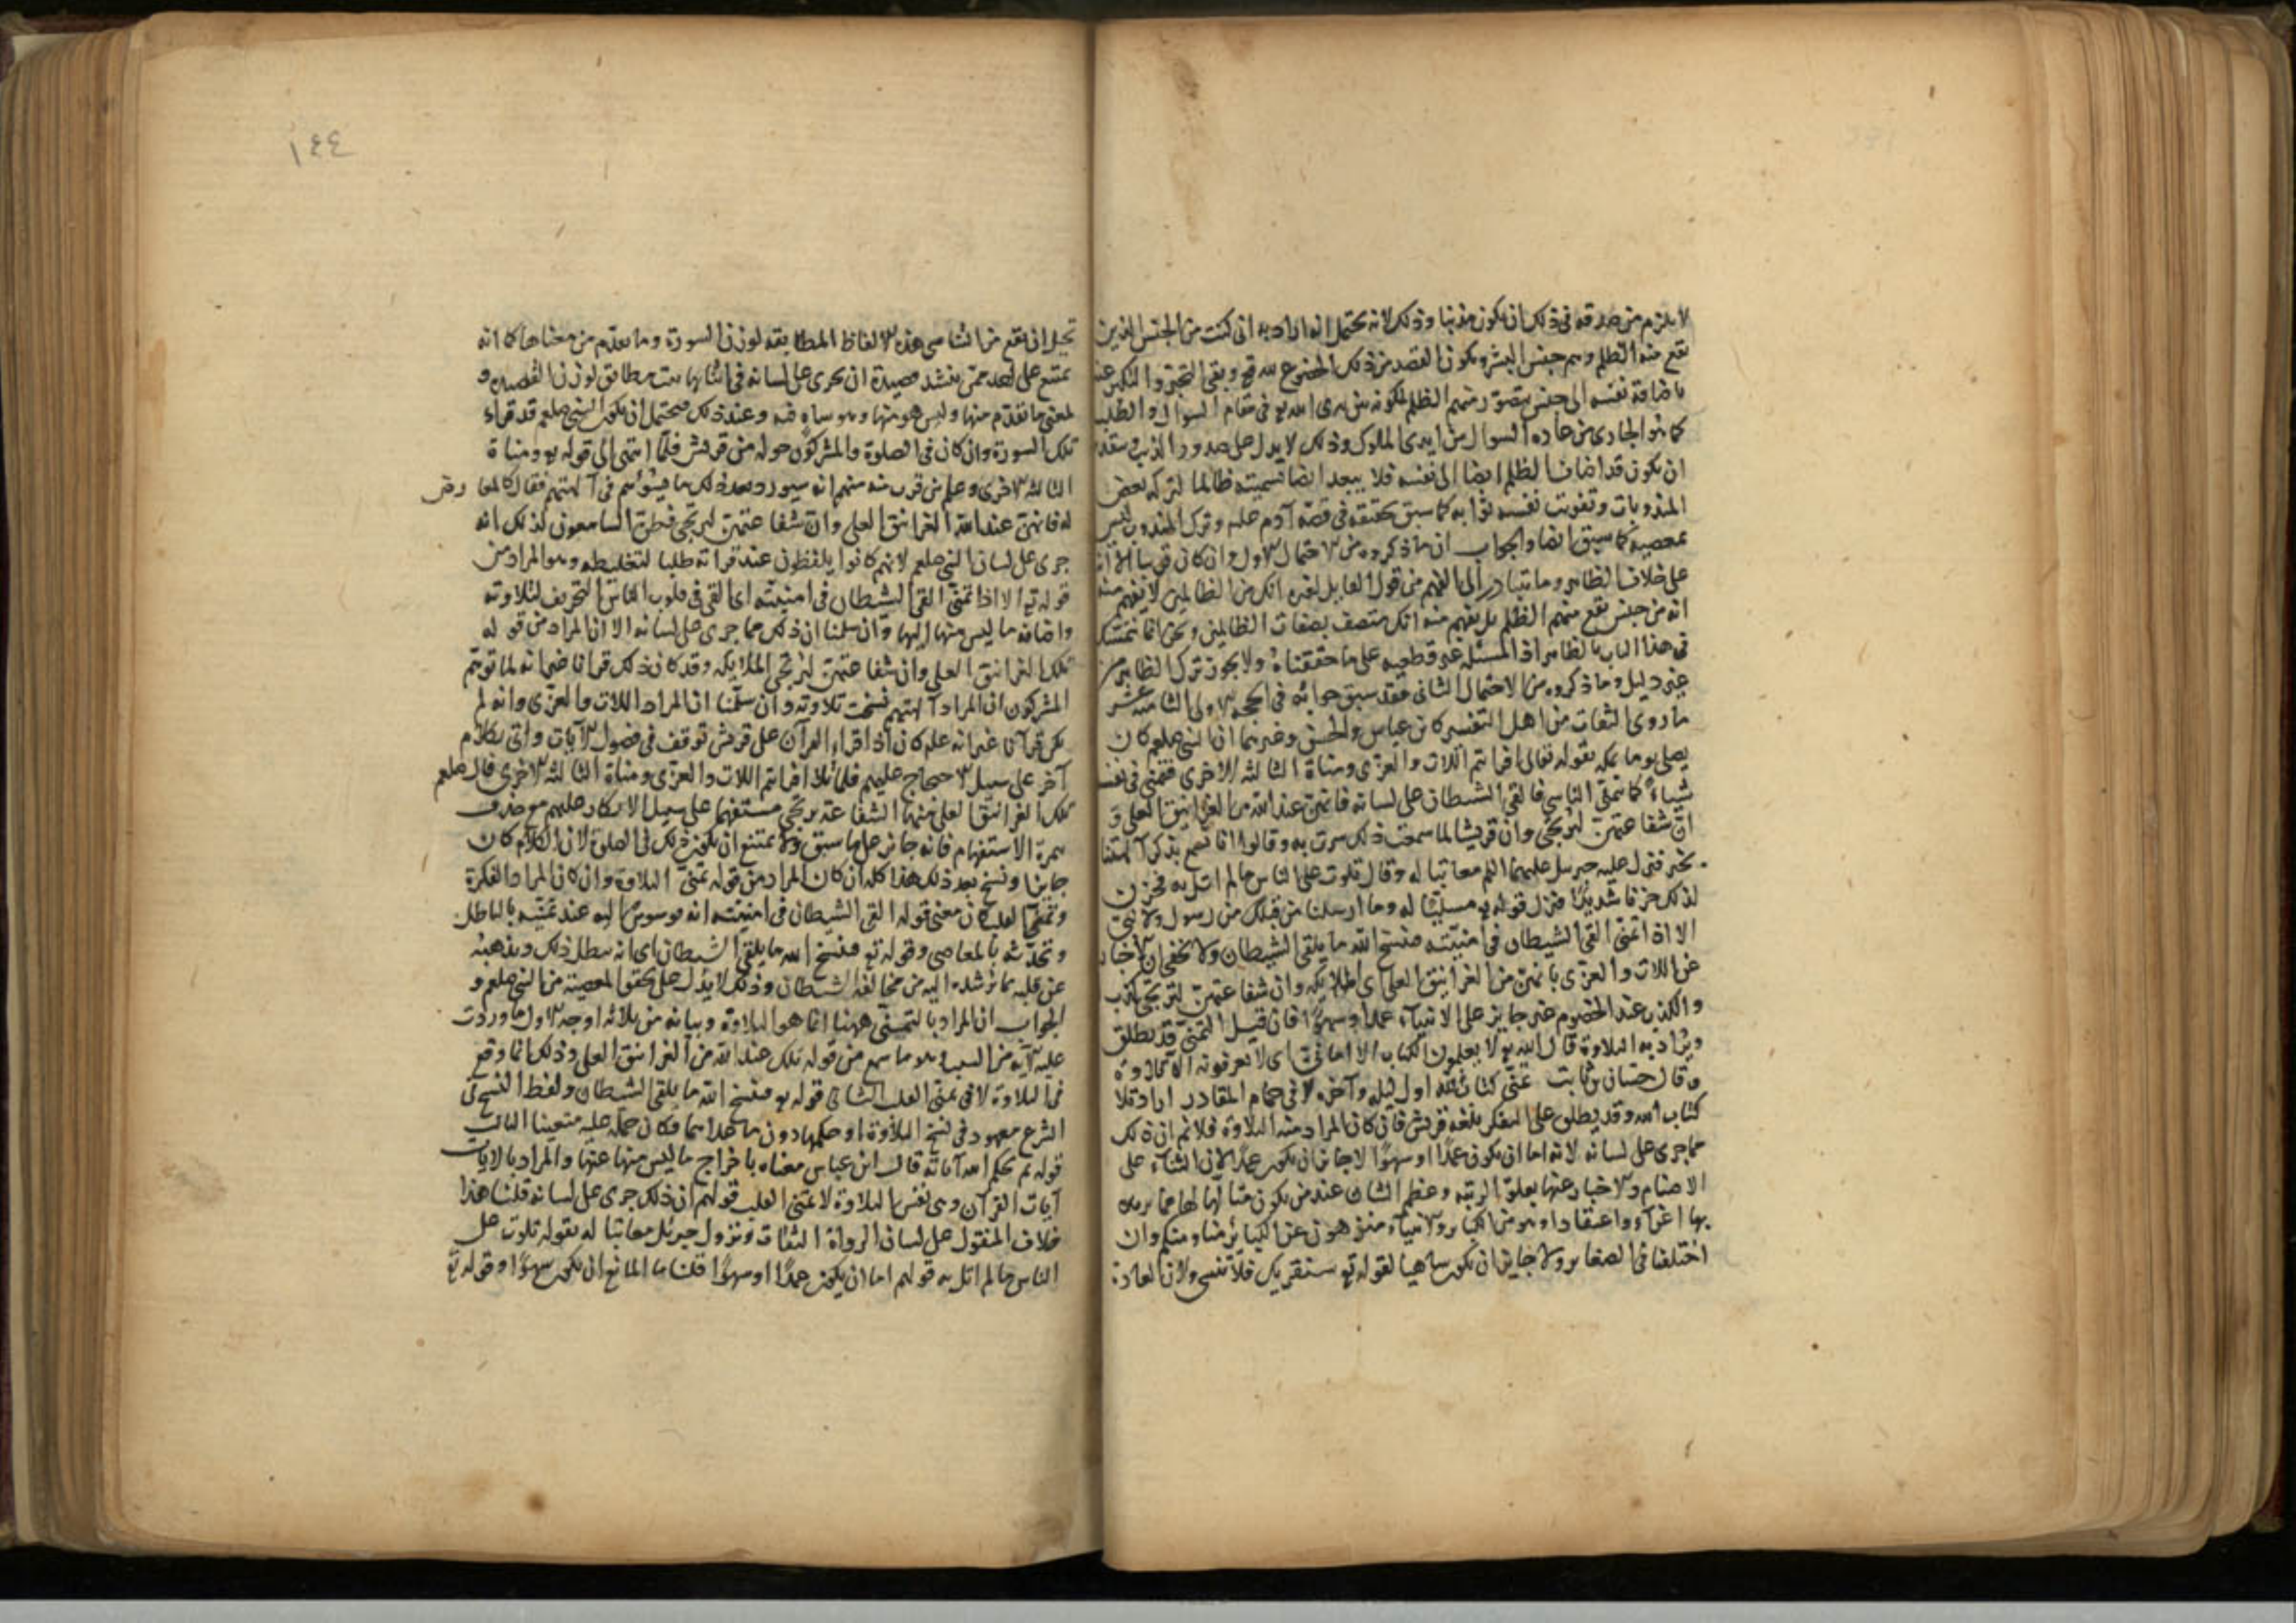 لا يلزم من صدقه في ذلك ان يكون مذنبا وذلك لانه يحتمل انه اراد به اني كنت من الجنس الذين
يقع منه الظلم وهم جنس البشر ويكون القصد من ذلك الخضوع لله تع ونفي التجبر والتكبر عنه
باضافة نفسه الى جنس يتصور منهم الظلم لكونه بين يدي الله تع في مقام السوال والطلب
كما هو الجاري من عادة السوال من ايدي الملوك وذلك لا يدل على صدور الذنب وبتقدير
ان يكون قد اضاف الظلم ايضا الى نفسه فلا يبعد ايضا تسميته ظالما لتركه بعض
المندوبات وتفويت نفسه ثوابه كما سبق تحقيقه في قصة آدم علم وترك المندوب ليس
بمعصية كما سبق ايضا والجواب ان ما ذكروه من الاحتمال الاول وان كان قريبا الا انه
على خلاف الظاهر وما يتبادر الى الفهم من قول القايل لغيره انك من الظالمين لا يفهم منه
انه من جنس يقع منهم الظلم بل يفهم منه انك متصف بصفات الظالمين ونحن انما نتمسك
في هذا الباب بالظاهر اذ المسئلة غير قطعية على ما حققناه ولا يجوز ترك الظاهر من
غير دليل وما ذكروه من الاحتمال الثاني فقد سبق جوابه في الحجة الاولى الثامنة عشر
ما روى الثقات من اهل التفسير كابن عباس والحسن وغيرهما ان النبي صلعم كان
يصلي يوما بمكة بقوله تعالى افرايتم اللات والعزى ومناة الثالثة الاخرى فتمنى في نفسه
شياء كما يتمنى الناس فالقى الشيطان على لسانه فانهن عند الله من الغرانيق العلى و
ان شفاعتهن لترتجى وان قريشا لما سمعت ذلك سرت به وقالوا انا نسمع بذكر آلهتنا
بخير فنزل عليه جبريل عليهما السلم معاتبا له وقال تلوت على الناس ما لم اتل به فحزن
لذلك حزنا شديدا فنزل قوله تع مسليا له وما ارسلنا من قبلك من رسول ولا نبي
الا اذا تمنى القى الشيطان في امنيته فينسخ الله ما يلقي الشيطان ولا يخفى ان الاخبار
عن اللات والعزى بانهن من الغرانيق العلى اي الملايكة وان شفاعتهن لترتجى كذب
والكذب عند الخصوم غير جايز على الانبياء عمدا وسهوا فان قيل التمني قد يطلق
ويراد به التلاوة قال الله تع لا يعلمون الكتاب الا اماني اي لا يعرفونه الا تلاوة
وقال حسان بن ثابت تمنى كتاب الله اول ليله وآخره لاقى حمام المقادر اراد تلا
كتاب الله وقد يطلق على المفكر بلغة قريش فان كان المراد منه التلاوة فلا نم ان ذلك
مما جرى على لسانه لانه اما ان يكون عمدا او سهوا لا جايز ان يكون عمدا لان الثناء على
الاصنام والاخبار عنها بعلو الرتبة وعظم الشان عند من يكون متالها لها مما يزيده
بها اغراء واعتقادا وهو من الكبائر والانبياء منزهون عن الكبائر منا ومنكم وان
اختلفنا في الصغاير ولا جايز ان يكون ساهيا لقوله تع سنقريك فلا تنسى ولان العادة
١٤٤
تحيل ان يقع من الناسي هذه الالفاظ المطابقة لوزن السورة وما تقدم من معناها كما انه
يمتنع على احد حتى ينشد قصيدة ان يجري على لسانه في اثنائها بيت مطابق لوزن القصيدة و
لمعنى ما تقدم منها وليس هو منها وهو ساه فيه وعند ذلك فيحتمل ان يكون النبي صلعم قد قراء
تلك السورة وان كان في الصلوة والمشركون حوله من قريش فلما انتهى الى قوله تع ومناة
الثالثة الاخرى وعلم من قرب منه منهم انه سيورد بعد ذلك ما يسؤهم في آلهتهم فقال كالمعارض
له فانهن عند الله الغرانيق العلى وان شفاعتهن لترتجى فظن السامعون لذلك انه
جرى على لسان النبي صلعم لانهم كانوا يلغطون عند قراته طلبا لتغليطه وهو المراد من
قوله تع الا اذا تمنى القى الشيطان في امنيته اي القى في قلوب الناس التحريف لتلاوته
واضافة ما ليس منها اليها وان سلمنا ان ذلك مما جرى على لسانه الا ان المراد من قوله
تلك الغرانيق العلى وان شفاعتهن لترتجى الملايكة وقد كان ذلك قرانا غير انه لما توهم
المشركون ان المراد آلهتهم نسخت تلاوته وان سلمنا ان المراد اللات والعزى وانه لم
يكن قرآنا غير انه علم كان اذا قراء القرآن على قريش توقف في فصول الآيات واتى بكلام
آخر على سبيل الاحتجاج عليهم فلما تلا افرايتم اللات والعزى ومناة الثالثة الاخرى قال صلعم
تلك الغرانيق العلى منها الشفاعة ترتجى مستفهما على سبيل الانكار عليهم مع حذف
همزة الاستفهام فانه جايز على ما سبق ولا يمتنع ان يكون ذلك في الصلوة لان الكلام كان
جايزا ونسخ بعد ذلك هذا كله ان كان المراد من قوله تمنى التلاوة وان كان المراد الفكرة
وتمني القلب كان معنى قوله القى الشيطان في امنيته انه يوسوس اليه عند تمنيه بالباطل
وتحدثه بالمعاصي وقوله تع فينسخ الله ما يلقي الشيطان اي انه يبطل ذلك ويذهبه
عن قلبه بما يرشده اليه من مخالفة الشيطان وذلك لا يدل على تحقق المعصية من النبي صلعم و
الجواب ان المراد بالتمني ههنا انما هو التلاوة وبيانه من ثلاثه اوجه الاول ما وردت
عليه الآية من السبب وهو ما سمع من قوله تلك عند الله من الغرانيق العلى وذلك انما وقع
في التلاوة لا في تمني القلب الثاني قوله تع فينسخ الله ما يلقي الشيطان ولفظ النسخ في
الشرع معهود في نسخ التلاوة او حكمها دون ما عداهما فكان حمله عليه متعينا الثالث
قوله ثم يحكم الله آياته قال ابن عباس معناه باخراج ما ليس منها عنها والمراد بالآيات
آيات القرآن وهي نفس التلاوة لا تمني القلب قولهم ان ذلك جرى على لسانه قلنا هذا
خلاف المنقول على لسان الرواة الثقات ونزول جبريل معاتبا له بقوله تلوت على
الناس ما لم اتل به قولهم اما ان يكون عمدا او سهوا قلنا ما المانع ان يكون سهوا وقوله تع